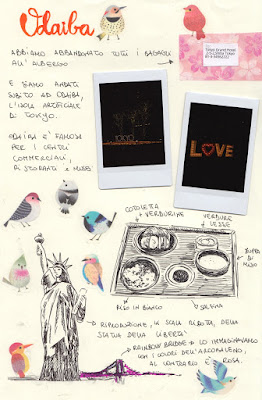 Odaiba
ABBIAMO ABBANDONATO TUTTI I BAGAGLI
ALL'ALBERGO
E SIAMO ANDATI
SUBITO AD ODAIBA,
L'ISOLA ARTIFICIALE
DI TOKYO.
ODAIBA E' FAMOSA
PER I CENTRI
COMMERCIALI,
RISTORANTI E MUSEI
TOKYO
LOVE
COTOLETTA
+ VERDURINE
VERDURE
LESSE
ZUPPA
DI MISO
RISO IN BIANCO
SALSINA
RIPRODUZIONE, IN SCALA RIDOTTA, DELLA
STATUA DELLA LIBERTA'
RAINBOW BRIDGE
LO IMMAGINAVAMO
CON I COLORI DELL'ARCOBALENO,
AL CONTRARIO E' ROSA.